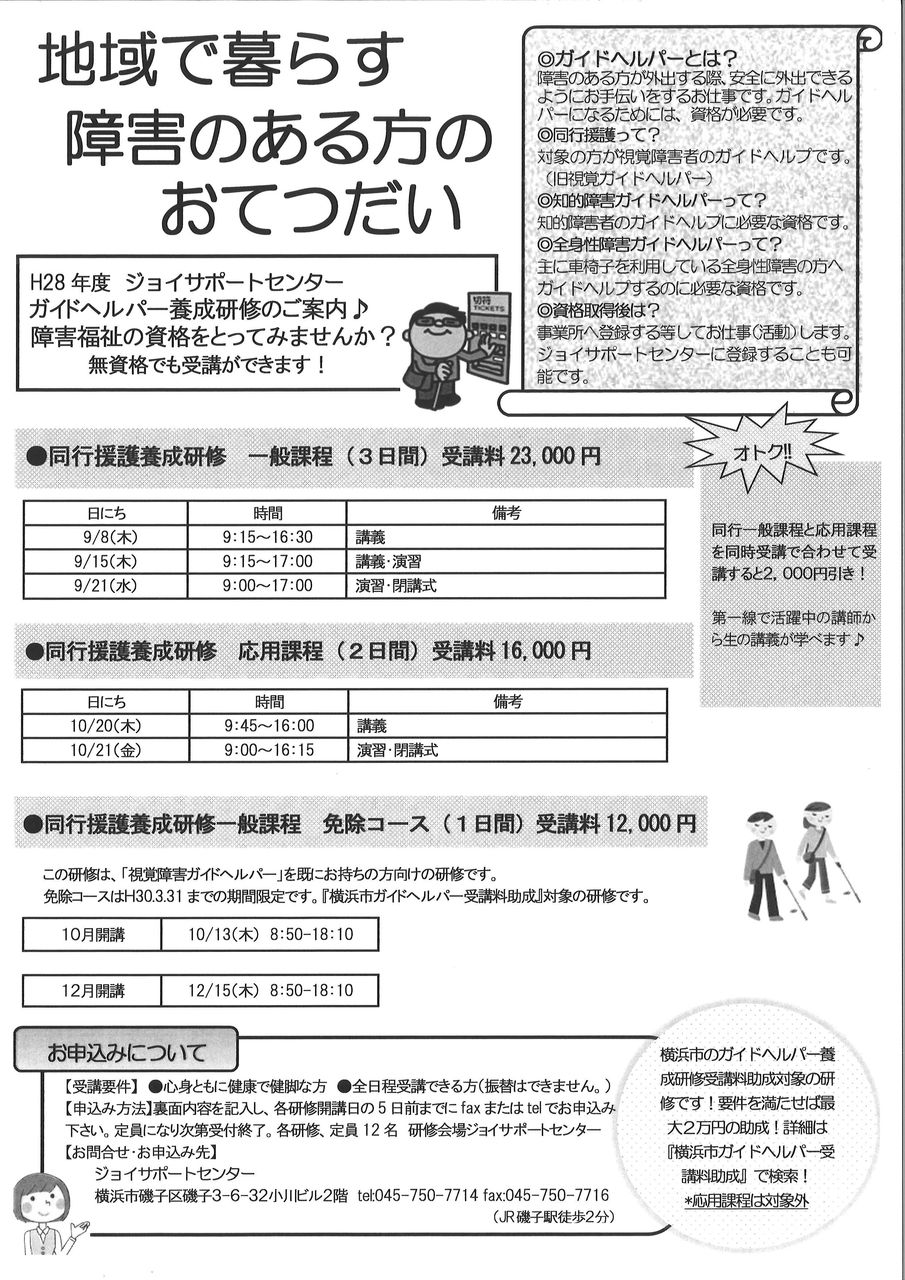 地域で暮らす
障害のある方の
おてつだい
H28年度 ジョイサポートセンター
ガイドヘルパー養成研修のご案内♪
障害福祉の資格をとってみませんか？
無資格でも受講ができます！
切符
TICKETS
◎ガイドヘルパーとは？
障害のある方が外出する際、安全に外出できる
ようにお手伝いをするお仕事です。ガイドヘル
パーになるためには、資格が必要です。
◎同行援護って？
対象の方が視覚障害者のガイドヘルプです。
（旧視覚ガイドヘルパー）
◎知的障害ガイドヘルパーって？
知的障害者のガイドヘルプに必要な資格です。
◎全身性障害ガイドヘルパーって？
主に車椅子を利用している全身性障害の方へ
ガイドヘルプするのに必要な資格です。
◎資格取得後は？
事業所へ登録する等してお仕事（活動）します。
ジョイサポートセンターに登録することも可
能です。
●同行援護養成研修 一般課程（３日間）受講料23,000円
日にち 時間 備考
9/8(木) 9:15～16:30 講義
9/15(木) 9:15～17:00 講義･演習
9/21(水) 9:00～17:00 演習･閉講式
オトク!!
同行一般課程と応用課程
を同時受講で合わせて受
講すると2，000円引き！
第一線で活躍中の講師か
ら生の講義が学べます♪
●同行援護養成研修 応用課程（２日間）受講料16,000円
日にち 時間 備考
10/20(木) 9:45～16:00 講義
10/21(金) 9:00～16:15 演習･閉講式
●同行援護養成研修一般課程 免除コース（１日間）受講料12,000円
この研修は、「視覚障害ガイドヘルパー」を既にお持ちの方向けの研修です。
免除コースはH30.3.31までの期間限定です。『横浜市ガイドヘルパー受講料助成』対象の研修です。
10月開講 10/13(木) 8:50-18:10
12月開講 12/15(木) 8:50-18:10
お申込みについて
【受講要件】 ●心身ともに健康で健脚な方 ●全日程受講できる方(振替はできません。)
【申込み方法】裏面内容を記入し、各研修開講日の５日前までにfaxまたはtelでお申込み
下さい。定員になり次第受付終了。各研修、定員12名 研修会場ジョイサポートセンター
【お問合せ･お申込み先】
ジョイサポートセンター
横浜市磯子区磯子3-6-32小川ビル2階 tel:045-750-7714 fax:045-750-7716
（JR磯子駅徒歩2分）
横浜市のガイドヘルパー養
成研修受講料助成対象の研
修です！要件を満たせば最
大２万円の助成！詳細は
『横浜市ガイドヘルパー受
講料助成』で検索！
*応用課程は対象外